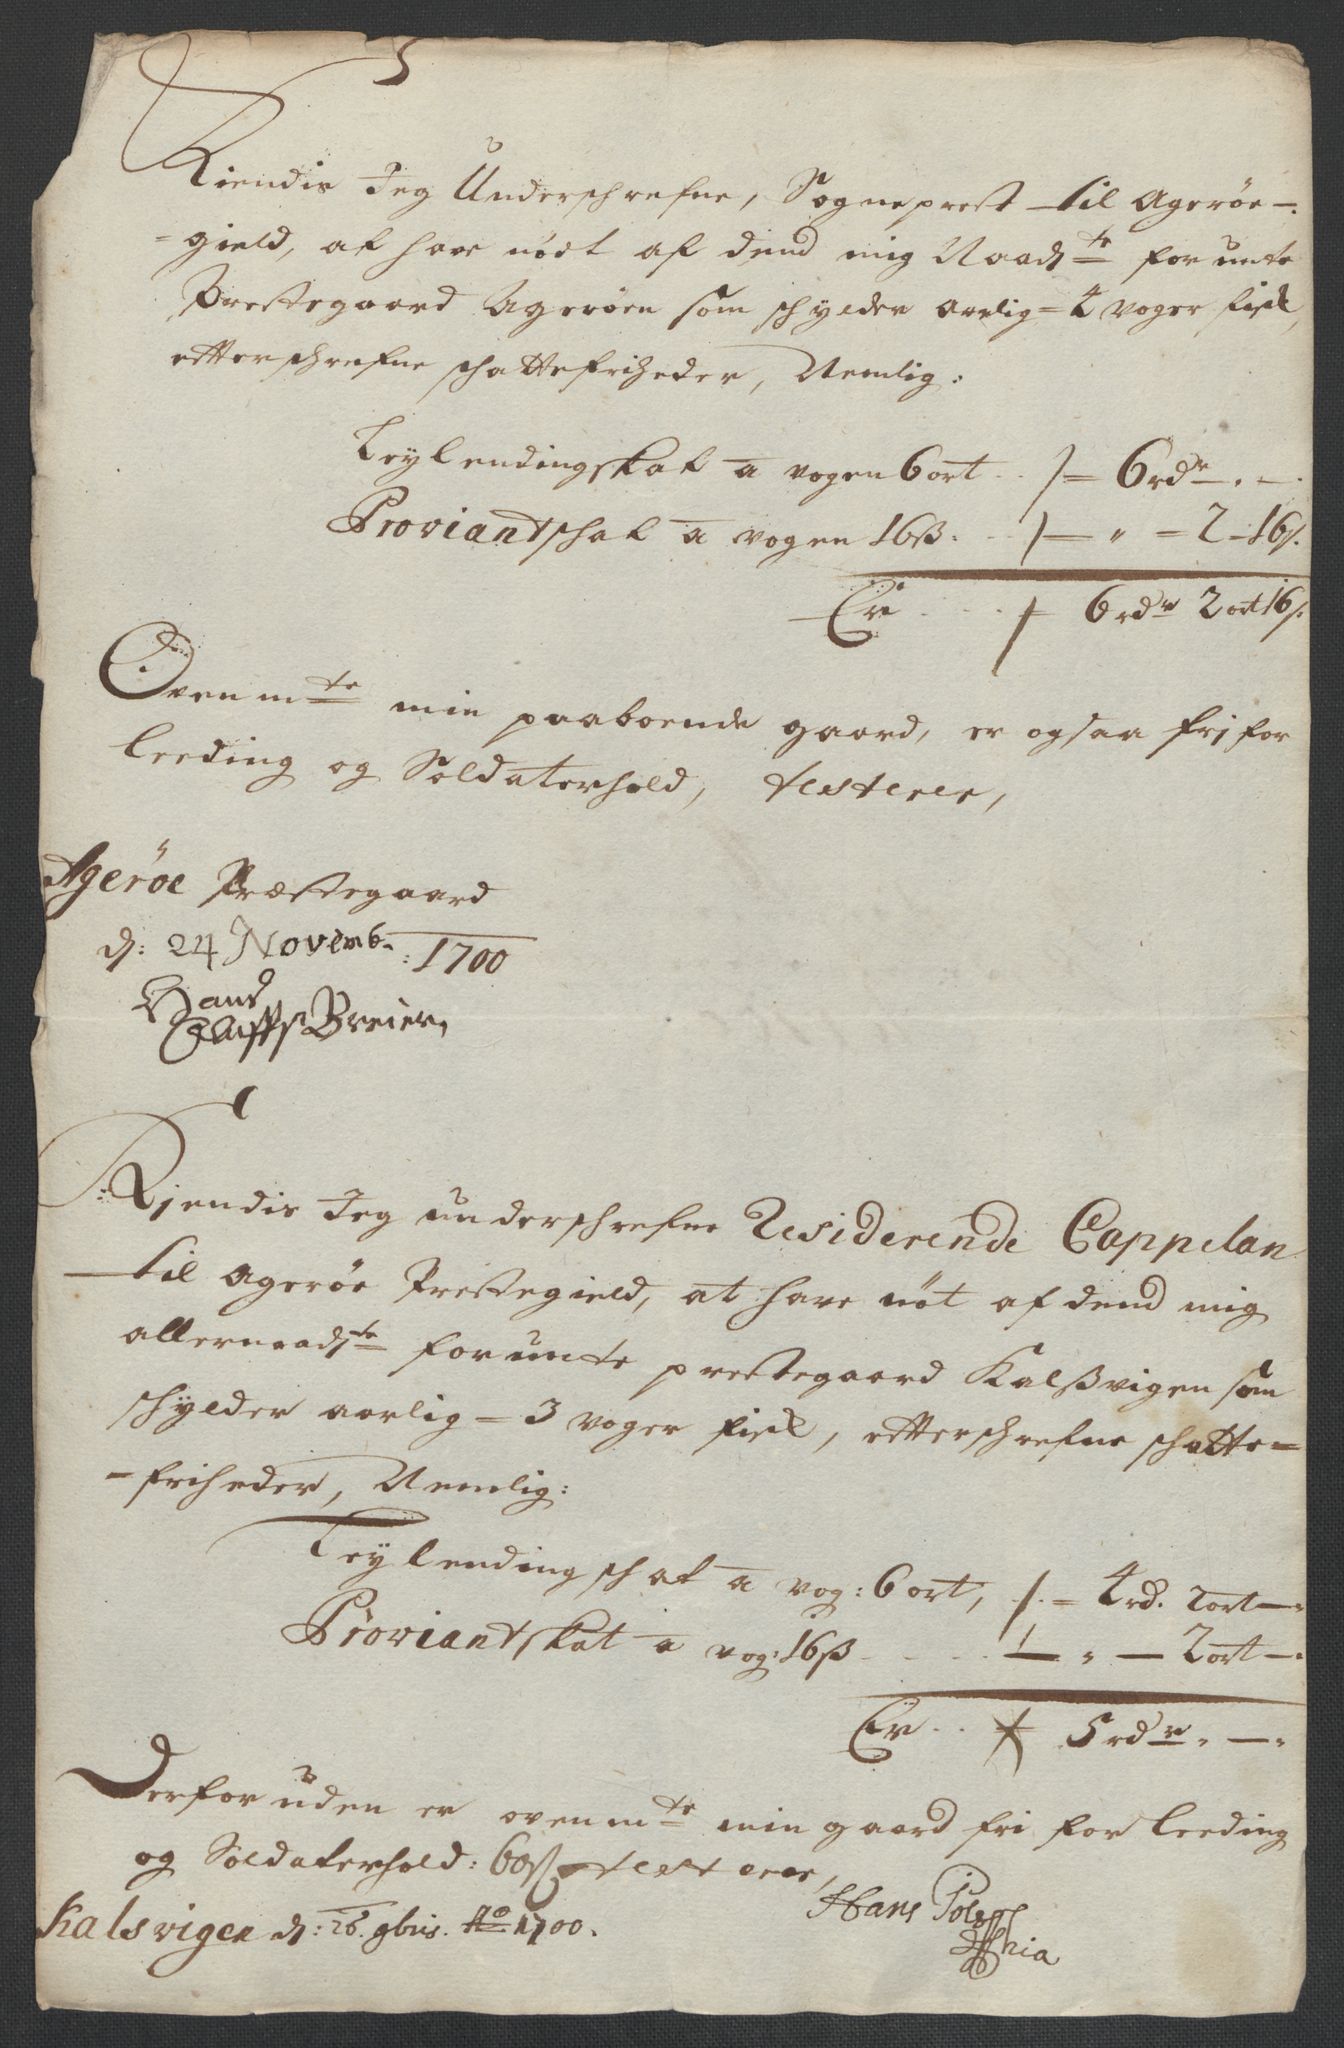 Kiendis Jeg Underschrefne, Sogneprest til Agerøe-
=gield, at have nödt af dend mig Naadste forunte
Prestegaard Agerøen som schylder aarlig = 4 voger fisk,
etterschrefne schattefriheder, Nemlig:
Leylendingskat a vogen 6 ort .. /= 6 rdr - . -
Proviantschat a vogen 16ß. .. /— " = 2 - 16 s.
Er . . . / 6 rdr 2 ort 16 s.
Ovenmte min paaboende gaard, er ogsaa fri for
Leeding og Soldaterhold, testerer,
Agerøe Præstegaard
d: 24 Novemb. : 1700
Hans
Oluffs Breier,
Kjendis Jeg underschrefne Residerende Cappelan
til Agerøe Prestegield, at have nøt af dend mig
allernaadste forunte prestegaard Kalßvigen som
schylder aarlig = 3 voger fisk, etterschrefne schatte=
=friheder, Nemlig:
Leylendingschat a vog: 6 ort, /. = 4 rd. 2 ort —
Proviantskat a vog: 16ß . . . . — " — 2 ort —
Er . . / 5 rdr . — .
Derforuden er ovenmte min gaard fri for Leeding
og Soldaterhold: testerer,
Kalsvigen d: 26. 9bris. Ao 1700.
Hans